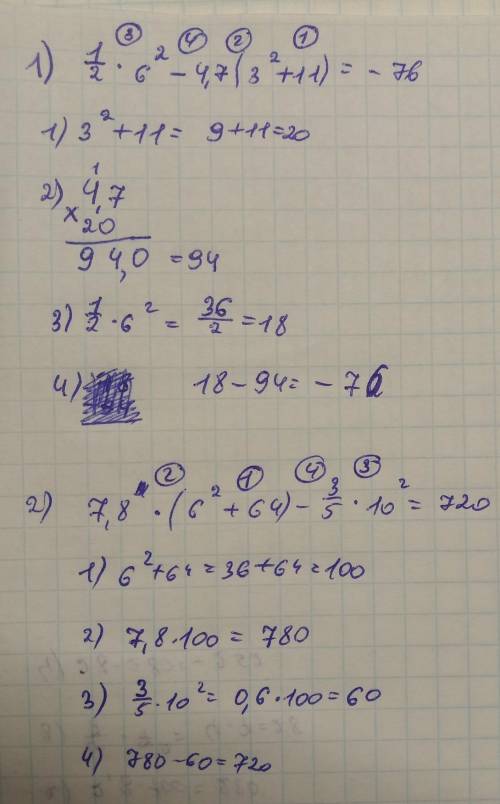 ③ ④ ② ①
1) 1/2 · 6² - 4,7(3²+11) = - 76
1) 3²+11 = 9+11=20
1
2) 4,7
× 20
94,0 = 94
3) 1/2 · 6² = 36/2 = 18
4) 18 - 94 = - 76
② ① ④ ③
2) 7,8 · (6² + 64) - 3/5 · 10² = 720
1) 6²+64 = 36+64 = 100
2) 7,8 · 100 = 780
3) 3/5 · 10² = 0,6 · 100 = 60
4) 780 - 60 = 720